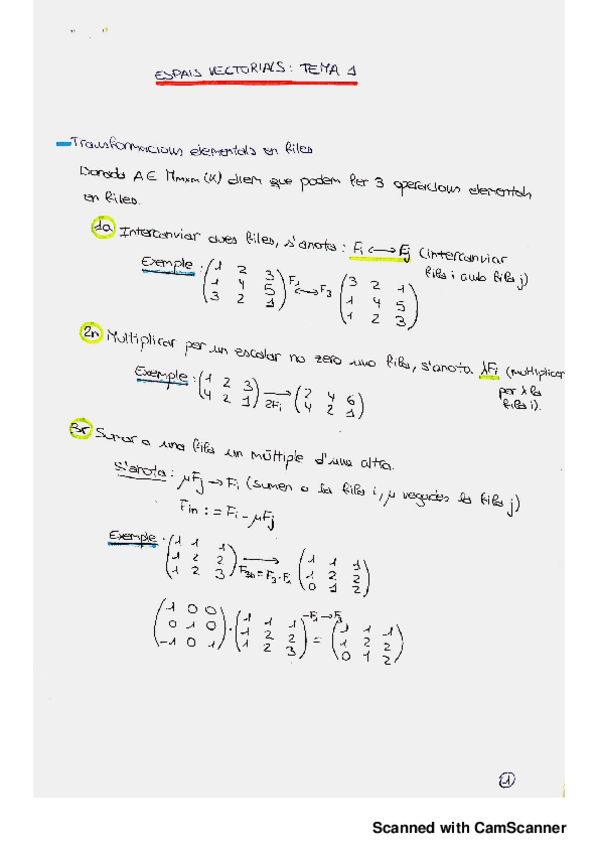 ESPAIS VECTORIALS: TEMA 1
Transformacions elementals en files
Donada A ∈ Mmxm (K) diem que podem fer 3 operacions elementals
en files.
1a Intercanviar dues files, s'anota: Fi ⟷ Fj (intercanviar
fila i amb fila j)
Exemple: (1 2 3 / 1 4 5 / 3 2 1) F1 ⟷ F3 (3 2 1 / 1 4 5 / 1 2 3)
2n Multiplicar per un escalar no zero una fila, s'anota. λFi (multiplicar
per λ la
fila i).
Exemple: (1 2 3 / 4 2 1) ⟶ 2Fi (2 4 6 / 4 2 1)
3r Sumar a una fila un múltiple d'una altra.
S'anota: μFj → Fi (sumem a la fila i, μ vegades la fila j)
Fin := Fi - μFj
Exemple: (1 1 1 / 1 2 2 / 1 2 3) ⟶ F3n = F3 - F1 (1 1 1 / 1 2 2 / 0 1 2)
(1 0 0 / 0 1 0 / -1 0 1) · (1 1 1 / 1 2 2 / 1 2 3) -F1 → F3 = (1 1 1 / 1 2 2 / 0 1 2)
1
Scanned with CamScanner